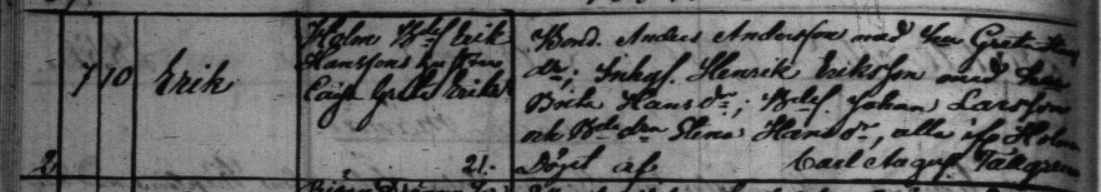 7 10 Erik
Holm Bdes Erik
Hanssons hustru
Caisa Greta Eriks
21.
Bond. Anders Andersson med hu Greta Hans
dr; Inhys. Henrik Eriksson med hu
Brita Hansdr; Bdes. Johan Larsson
och Bdedtrn Stina Hansdr, alla ifr Holm
Döpt af Carl August Tallgren
2